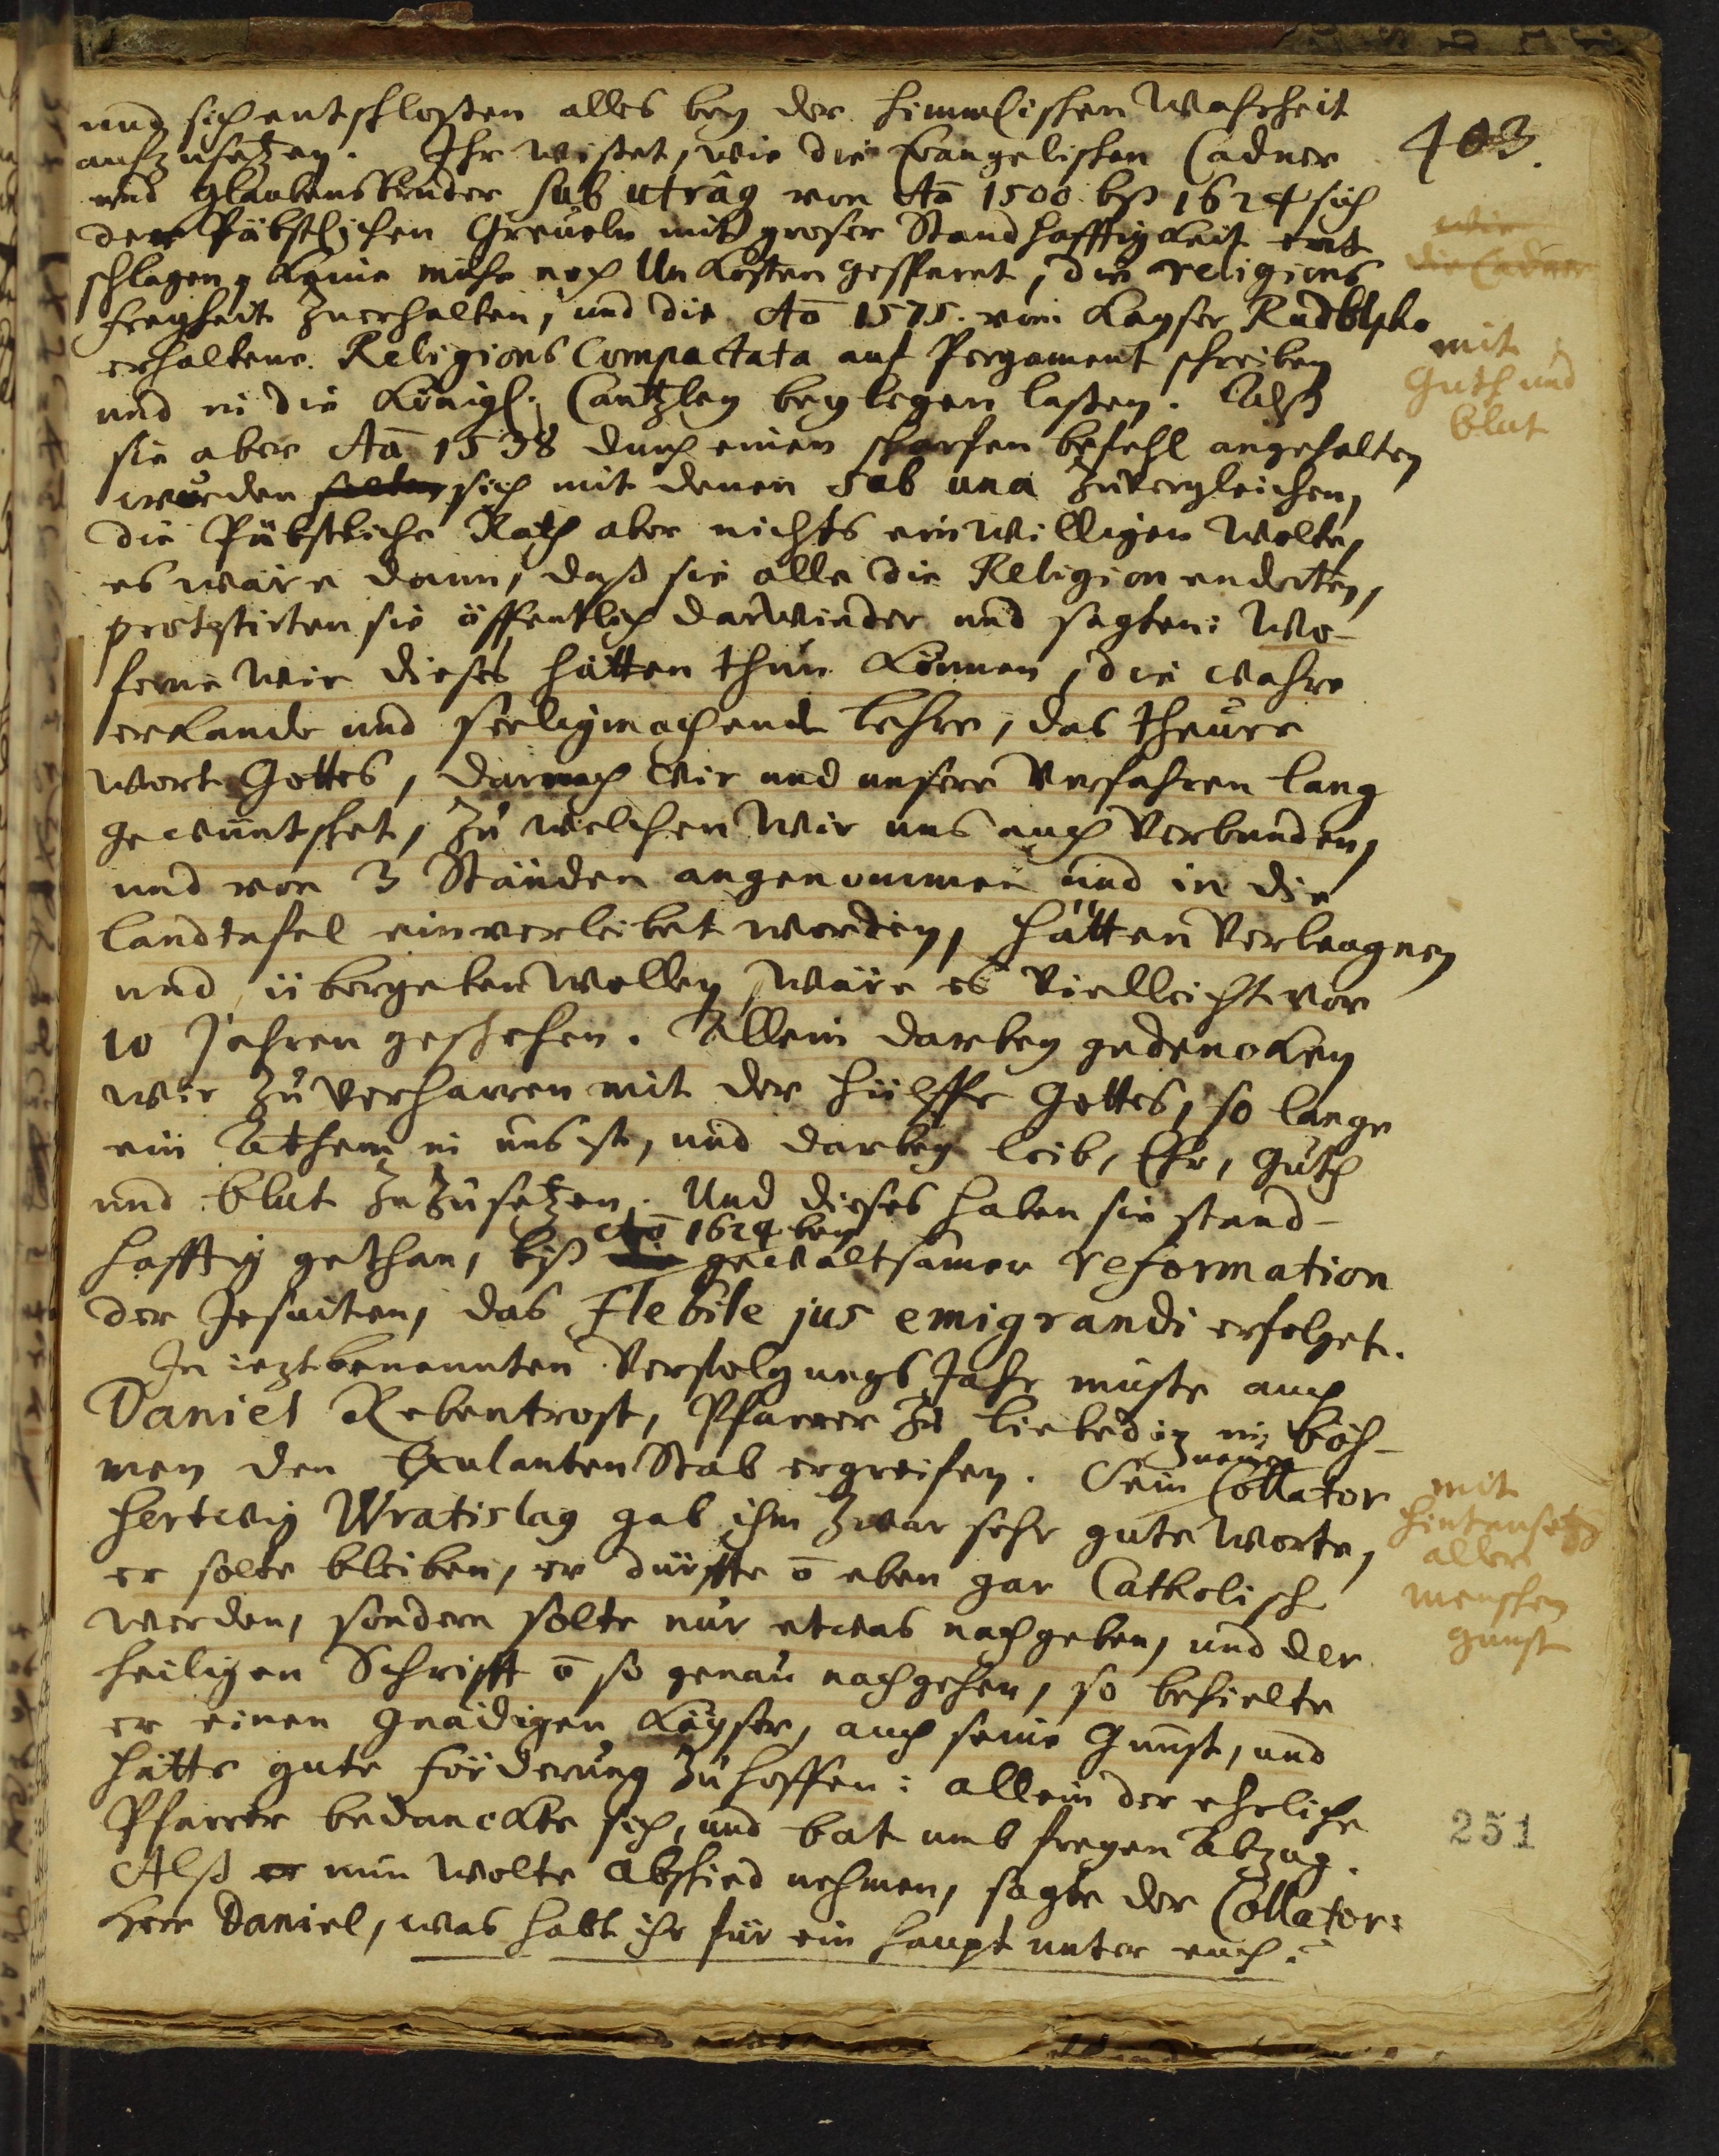 403.
und sich entschlossen alles bey der himmlischen Wahrheit
aufzusetzen. Ihr wisset, wie die Evangelischen Cadner
und Glaubensbrüder sub utrâq von Aō 1500. biß 1624 sich
der Päbstlichen Greueln mit groser Standhafftigkeit ent
schlagen, keine mühe noch Unkosten gesparet, die religions
freyheit zuerhalten, und die Aō 1575. vom Kayser Rudolpho
erhaltene Religions Compactata auf Pergament schreiben
und in die Königl. Cantzley beylegen lassen. Alß
sie aber Aō 1538 durch einen scharfen befehl angehalten
wurden solten sich mit denen sub una zuvergleichen,
die Päbstliche Räth aber nichts einwilligen wolten,
es wäre dann, daß sie alle die Religion enderten,
protestirten sie öffentlich darwieder und sagten: Wo-
ferne wir dieses hätten thun können, die wahre
erkande und seeligmachende lehre, das theure
wort Gottes, darnach wir und unsere Vorfahren lang
gewüntschet, zu welchen wir uns auch verbunden,
und von 3 Ständen angenommen und in die
landtafel einverleibet worden, hätten verleugnen
und übergeben wollen, wäre es vielleicht vor
10 Jahren geschehen. Allein darbey gedencken
wir zu verharren mit der hülffe Gottes, so lange
ein Athem in uns ist, und darbey leib, Ehr, Guth
und blut zuzusetzen. Und dieses haben sie stand-
Aō 1624 bey
hafftig gethan, biß die gewaltsamer reformation
der Jesuiten, das flebile jus emigrandi erfolget.
In ieztbenannten Verfolgungs Jahr muste auch
Daniel Rebentrost, Pfarrer zu liebediz in Böh-
men den Exulanten Stab ergreifen. Sein Collator
hertwig Wratislag gab ihm zwar sehr gute Worte,
er solte bleiben, er dürffte ō eben gar Catholisch
werden, sondern solte nur etwas nachgeben, und der
heiligen Schrifft ō so genau nachgehen, so behielte
er einen Gnädigen Kayser, auch seine Gunst, und
hätte gute Förderung zu hoffen: allein der ehrliche
Pfarrer bedanckte sich, und bat umb freyen Abzug.
Alß er nun wolte Abschied nehmen, sagte der Collator:
Herr Daniel, was habt ihr für ein haupt unter euch?
wie
die Cadner
mit
Guth und
blut
mit
hintansetz
aller
menschen
gunst
251